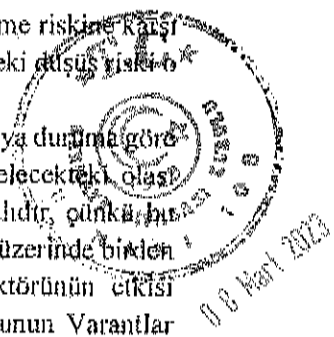 me riskine karşı
eki düşüş riski o
ya duruma göre
elecekteki olası
lıdır, çünkü bir
üzerinde birden
ktörünün etkisi
unun Varantlar
08 Mart 2023